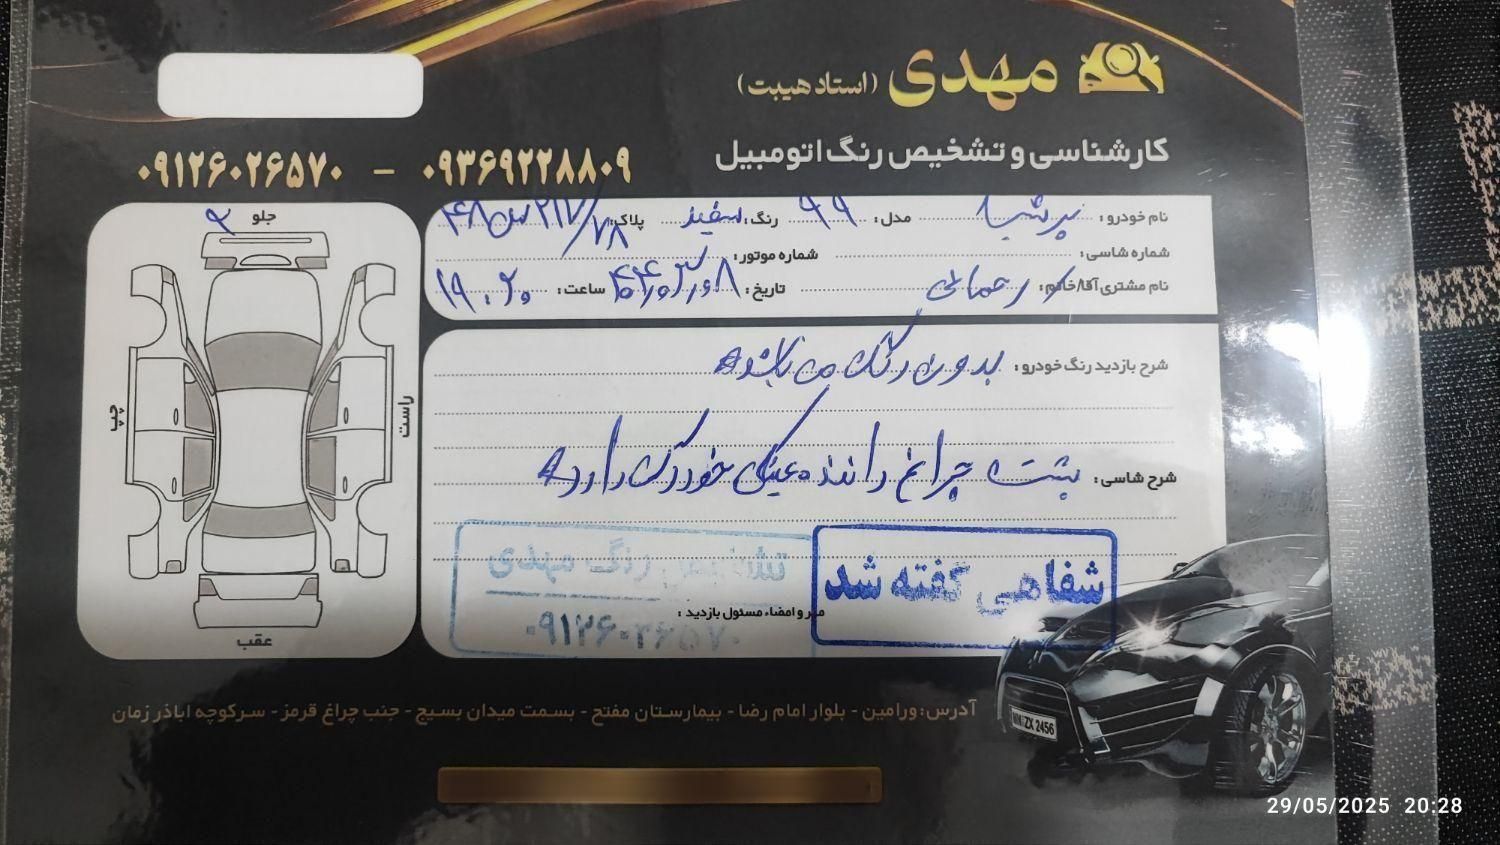 مهدی (استاد هیبت)
کارشناسی و تشخیص رنگ اتومبیل
۰۹۱۲۶۰۲۶۵۷۰ - ۰۹۳۶۹۲۲۸۸۰۹
نام خودرو : پرشیا مدل : ۹۹ رنگ : سفید پلاک :
شماره شاسی : شماره موتور :
نام مشتری آقا/خانم : رحمانی تاریخ : ساعت : ۱۹:۲۰
جلو
چپ
راست
عقب
شرح بازدید رنگ خودرو : بدون رنگ می باشد
شرح شاسی : پشت چراغ راننده عینکی خوردگی دارد
شفاهی گفته شد
تشخیص رنگ مهدی
۰۹۱۲۶۰۲۶۵۷۰
مهر و امضاء مسئول بازدید :
آدرس : ورامین - بلوار امام رضا - بیمارستان مفتح - بسمت میدان بسیج - جنب چراغ قرمز - سرکوچه اباذر زمان
ZX 2456
29/05/2025 20:28